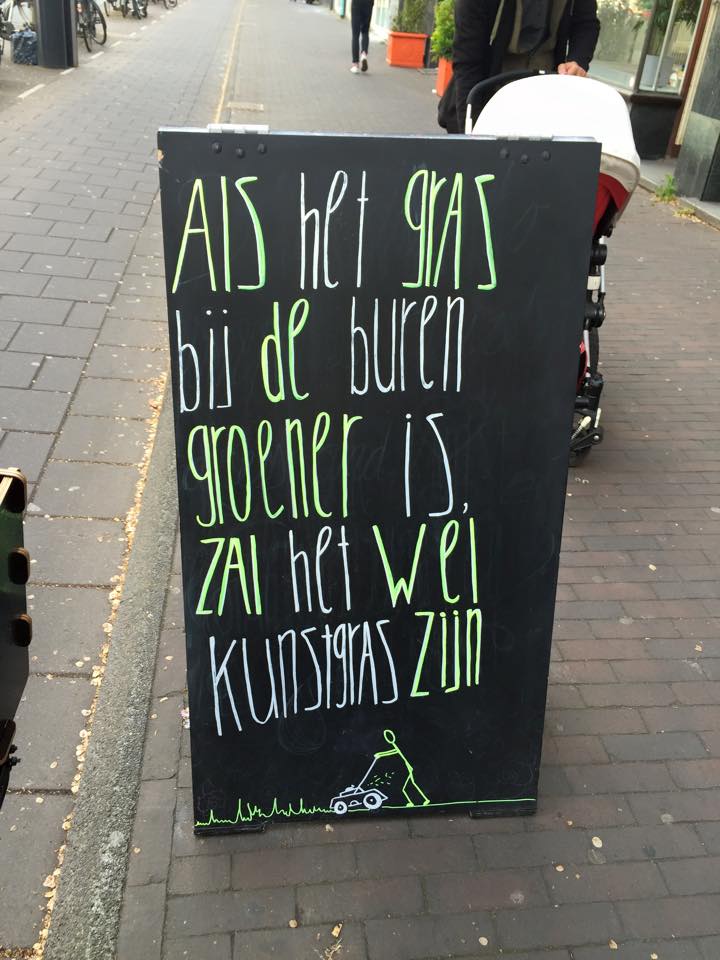 Als het gras
bij de buren
groener is,
zal het wel
kunstgras zijn